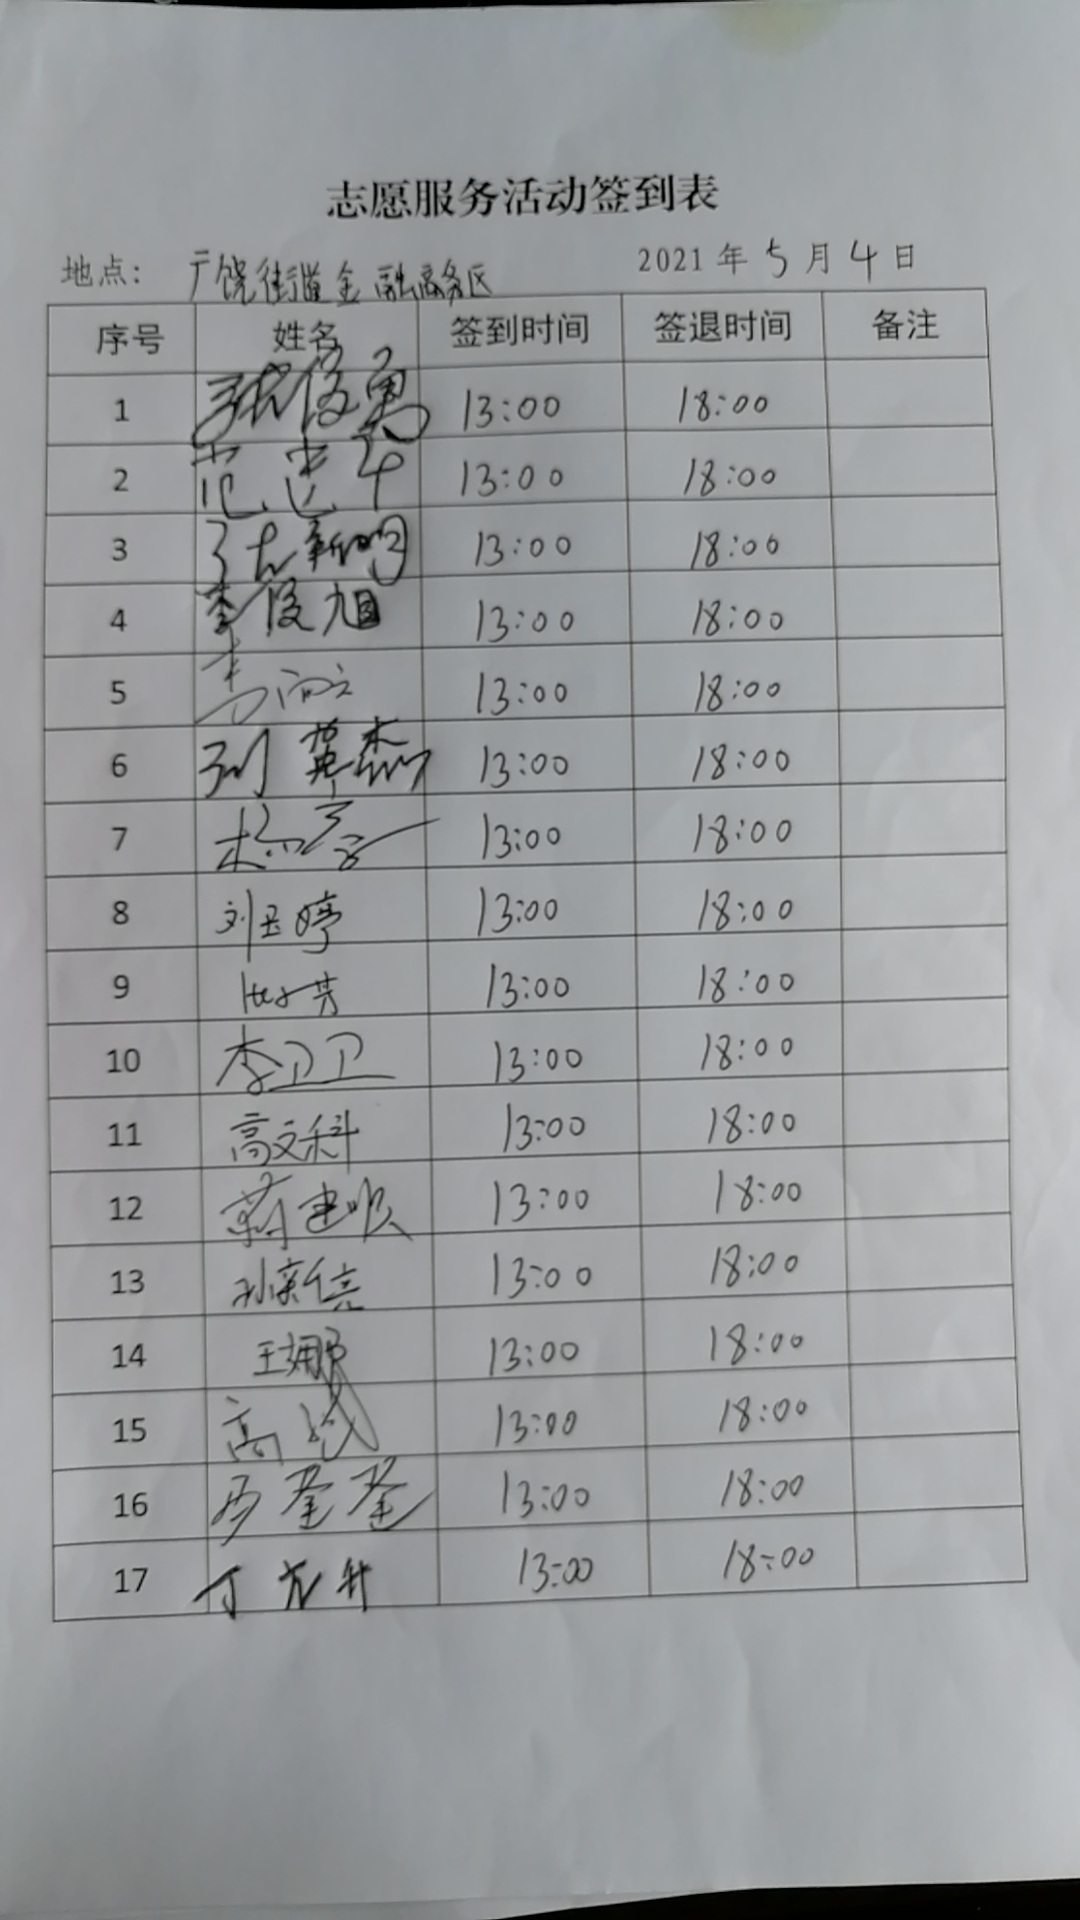 志愿服务活动签到表
地点: 广饶街道金融商务区 2021年5月4日
序号 姓名 签到时间 签退时间 备注
1 张俊勇 13:00 18:00
2 范 13:00 18:00
3 张新明 13:00 18:00
4 李俊旭 13:00 18:00
5 13:00 18:00
6 刘英杰 13:00 18:00
7 杨 13:00 18:00
8 刘玉婷 13:00 18:00
9 芳 13:00 18:00
10 李卫卫 13:00 18:00
11 高文科 13:00 18:00
12 蒋建顺 13:00 18:00
13 孙新亮 13:00 18:00
14 王娜 13:00 18:00
15 高 13:00 18:00
16 奎奎 13:00 18:00
17 丁 13:00 18:00